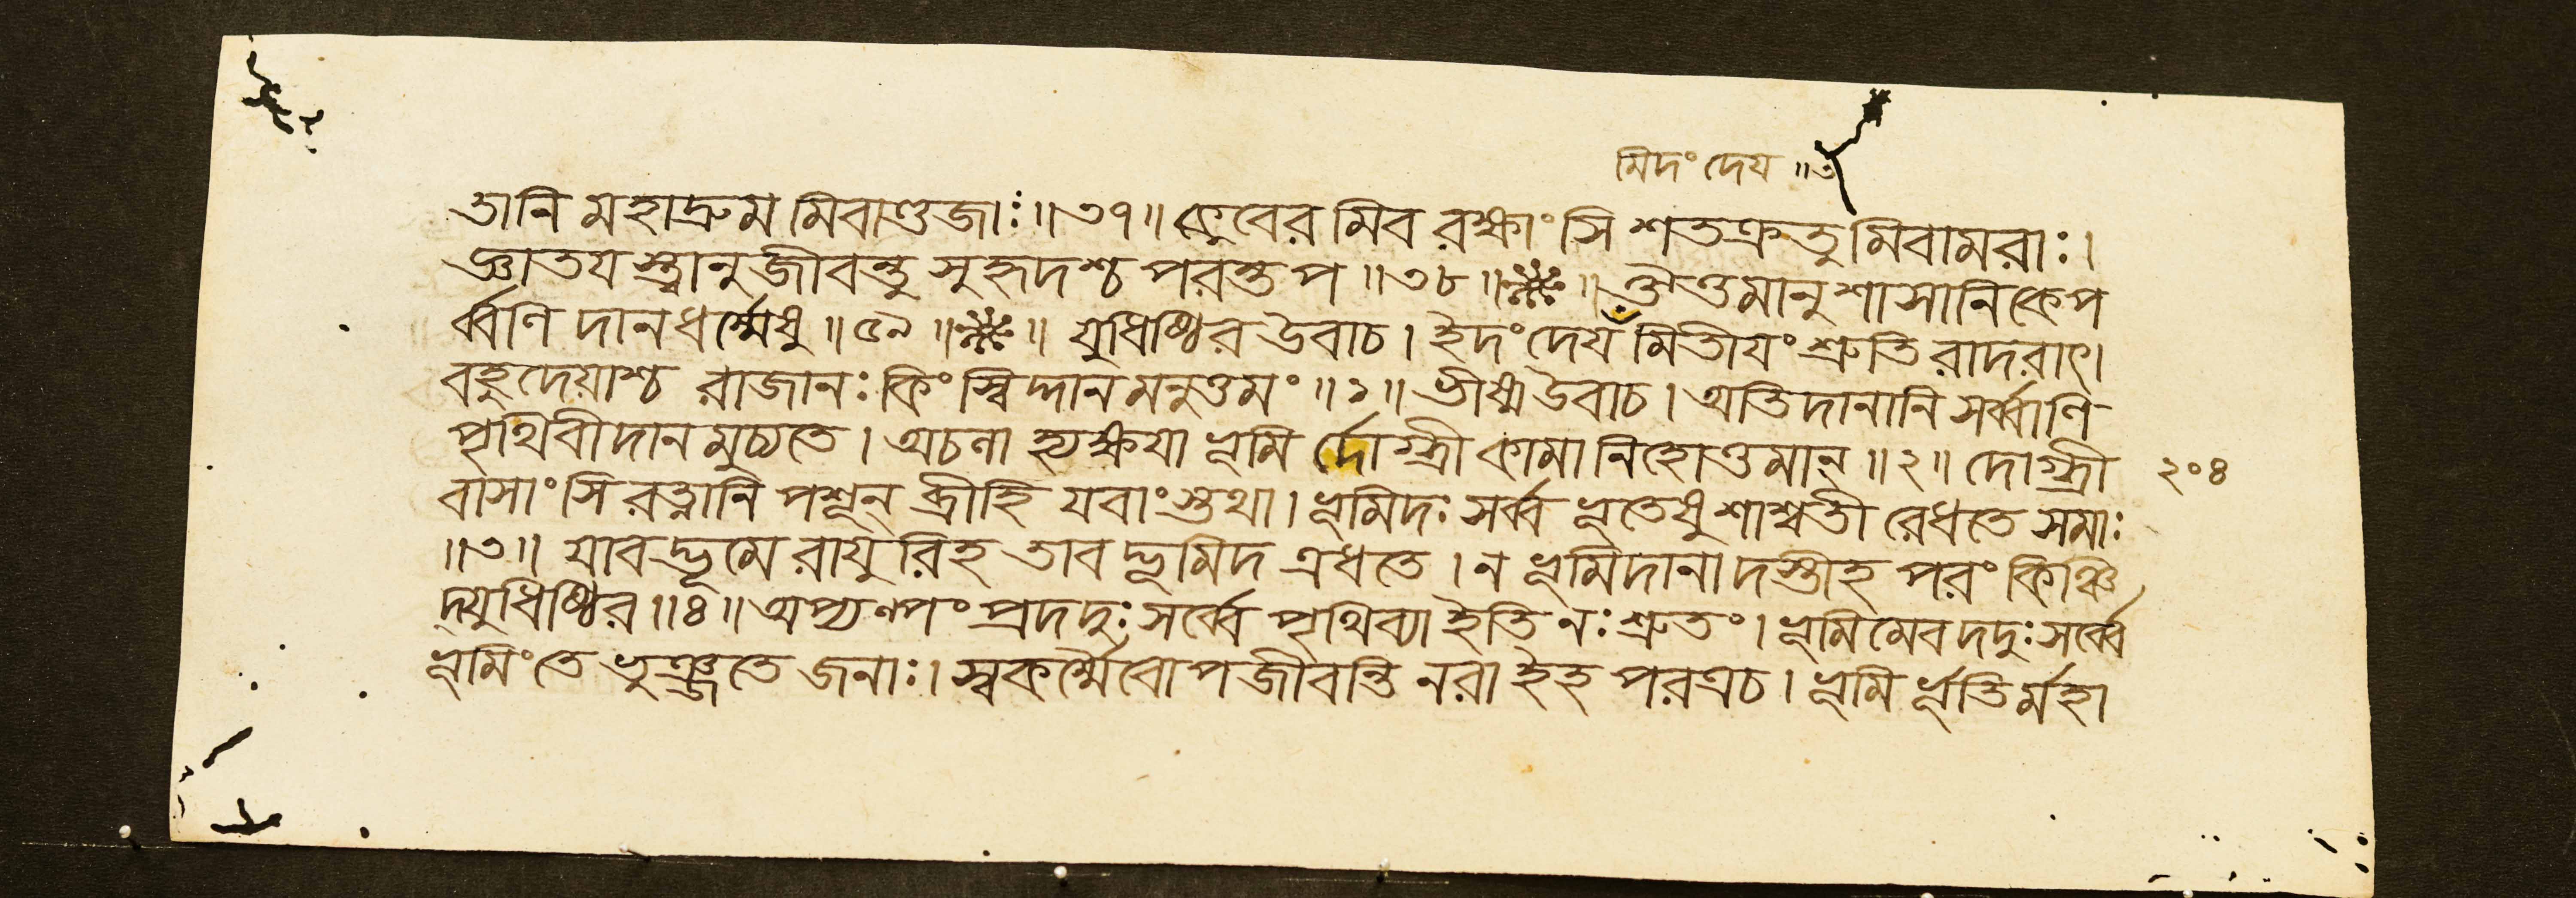 মিদং দেয ॥৩
তানি মহাদ্রুম মিবাণ্ডজাঃ ॥ ৩৭ ॥ কুবের মিব রক্ষাংসি শতক্রতু মিবামরাঃ ।
জ্ঞাতয স্ত্বানুজীবন্তু সুহৃদশ্চ পরন্তপ ॥ ৩৮ ॥ ❋ ॥ ঔত্তমানুশাসানিকেপ
র্ব্বণি দানধর্ম্মেষু ॥ ৫৯ ॥ ❋ ॥ যুধিষ্ঠির উবাচ । ইদং দেয মিতীযং শ্রুতি রাদরাৎ ।
বহুদেয়াশ্চ রাজানঃ কিং স্বিদ্দানমনুত্তমং ॥ ১ ॥ ভীষ্ম উবাচ । অতিদানানি সর্ব্বাণি
পৃথিবীদান মুচ্যতে । অচলা হ্যক্ষযা ভূমি র্দোগ্ধ্রী কামানিহোত্তমান্ ॥ ২ ॥ দোগ্ধ্রী
২০৪
বাসাংসি রত্নানি পশূন্ ব্রীহি যবাংস্তথা । ভূমিদঃ সর্ব্ব ভূতেষু শাশ্বতী রেধতে সমাঃ
॥ ৩ ॥ যাবদ্ভূমে রাযুরিহ তাবদ্ভূমিদ এধতে । ন ভূমিদানাদস্তীহ পরং কিঞ্চি
দ্যুধিষ্ঠির ॥ ৪ ॥ অপ্যল্পং প্রদদুঃ সর্ব্বে পৃথিব্যা ইতি নঃ শ্রুতং । ভূমিমেব দদুঃ সর্ব্বে
ভূমিং তে ভুঞ্জতে জনাঃ । স্বকর্ম্মৈবোপজীবন্তি নরা ইহ পরত্র চ । ভূমি র্ভূতি র্মহা